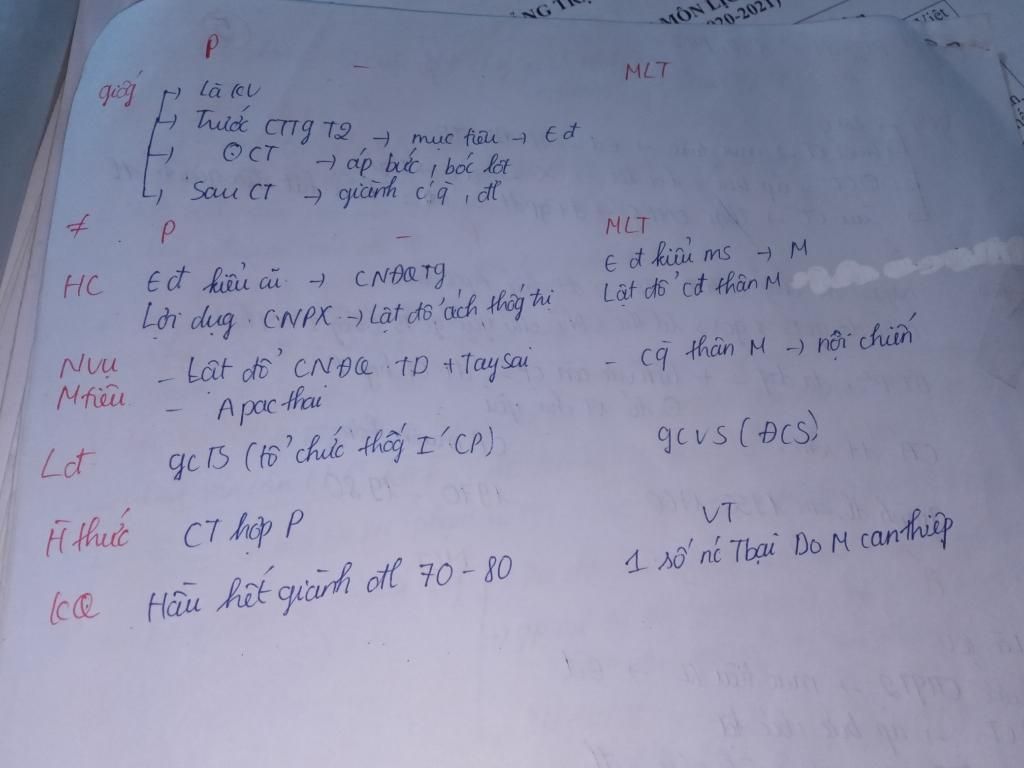 MÔN L
020-2021)
Việt
P – MLT
giống → Là KV
→ Trước CTTg T2 → mục tiêu → € đ
→ ⊙ CT → áp bức, bóc lột
→ Sau CT → giành c/q, đl
≠ P – MLT
HC € đ kiểu cũ → CNĐQ TG € đ kiểu ms → M
Lợi dụg CNPX → Lật đổ ách thống trị Lật đổ cđ thân M
Nvụ – Lật đổ CNĐQ TD + Tay sai – CQ thân M → nội chiến
Mtiêu – Apacthai
Lđ gcTS (tổ chức thống I' CP) gcvs (ĐCS)
H thức CT hợp P VT
KQ Hầu hết giành đl 70 – 80 1 số nc Tbại Do M can thiệp